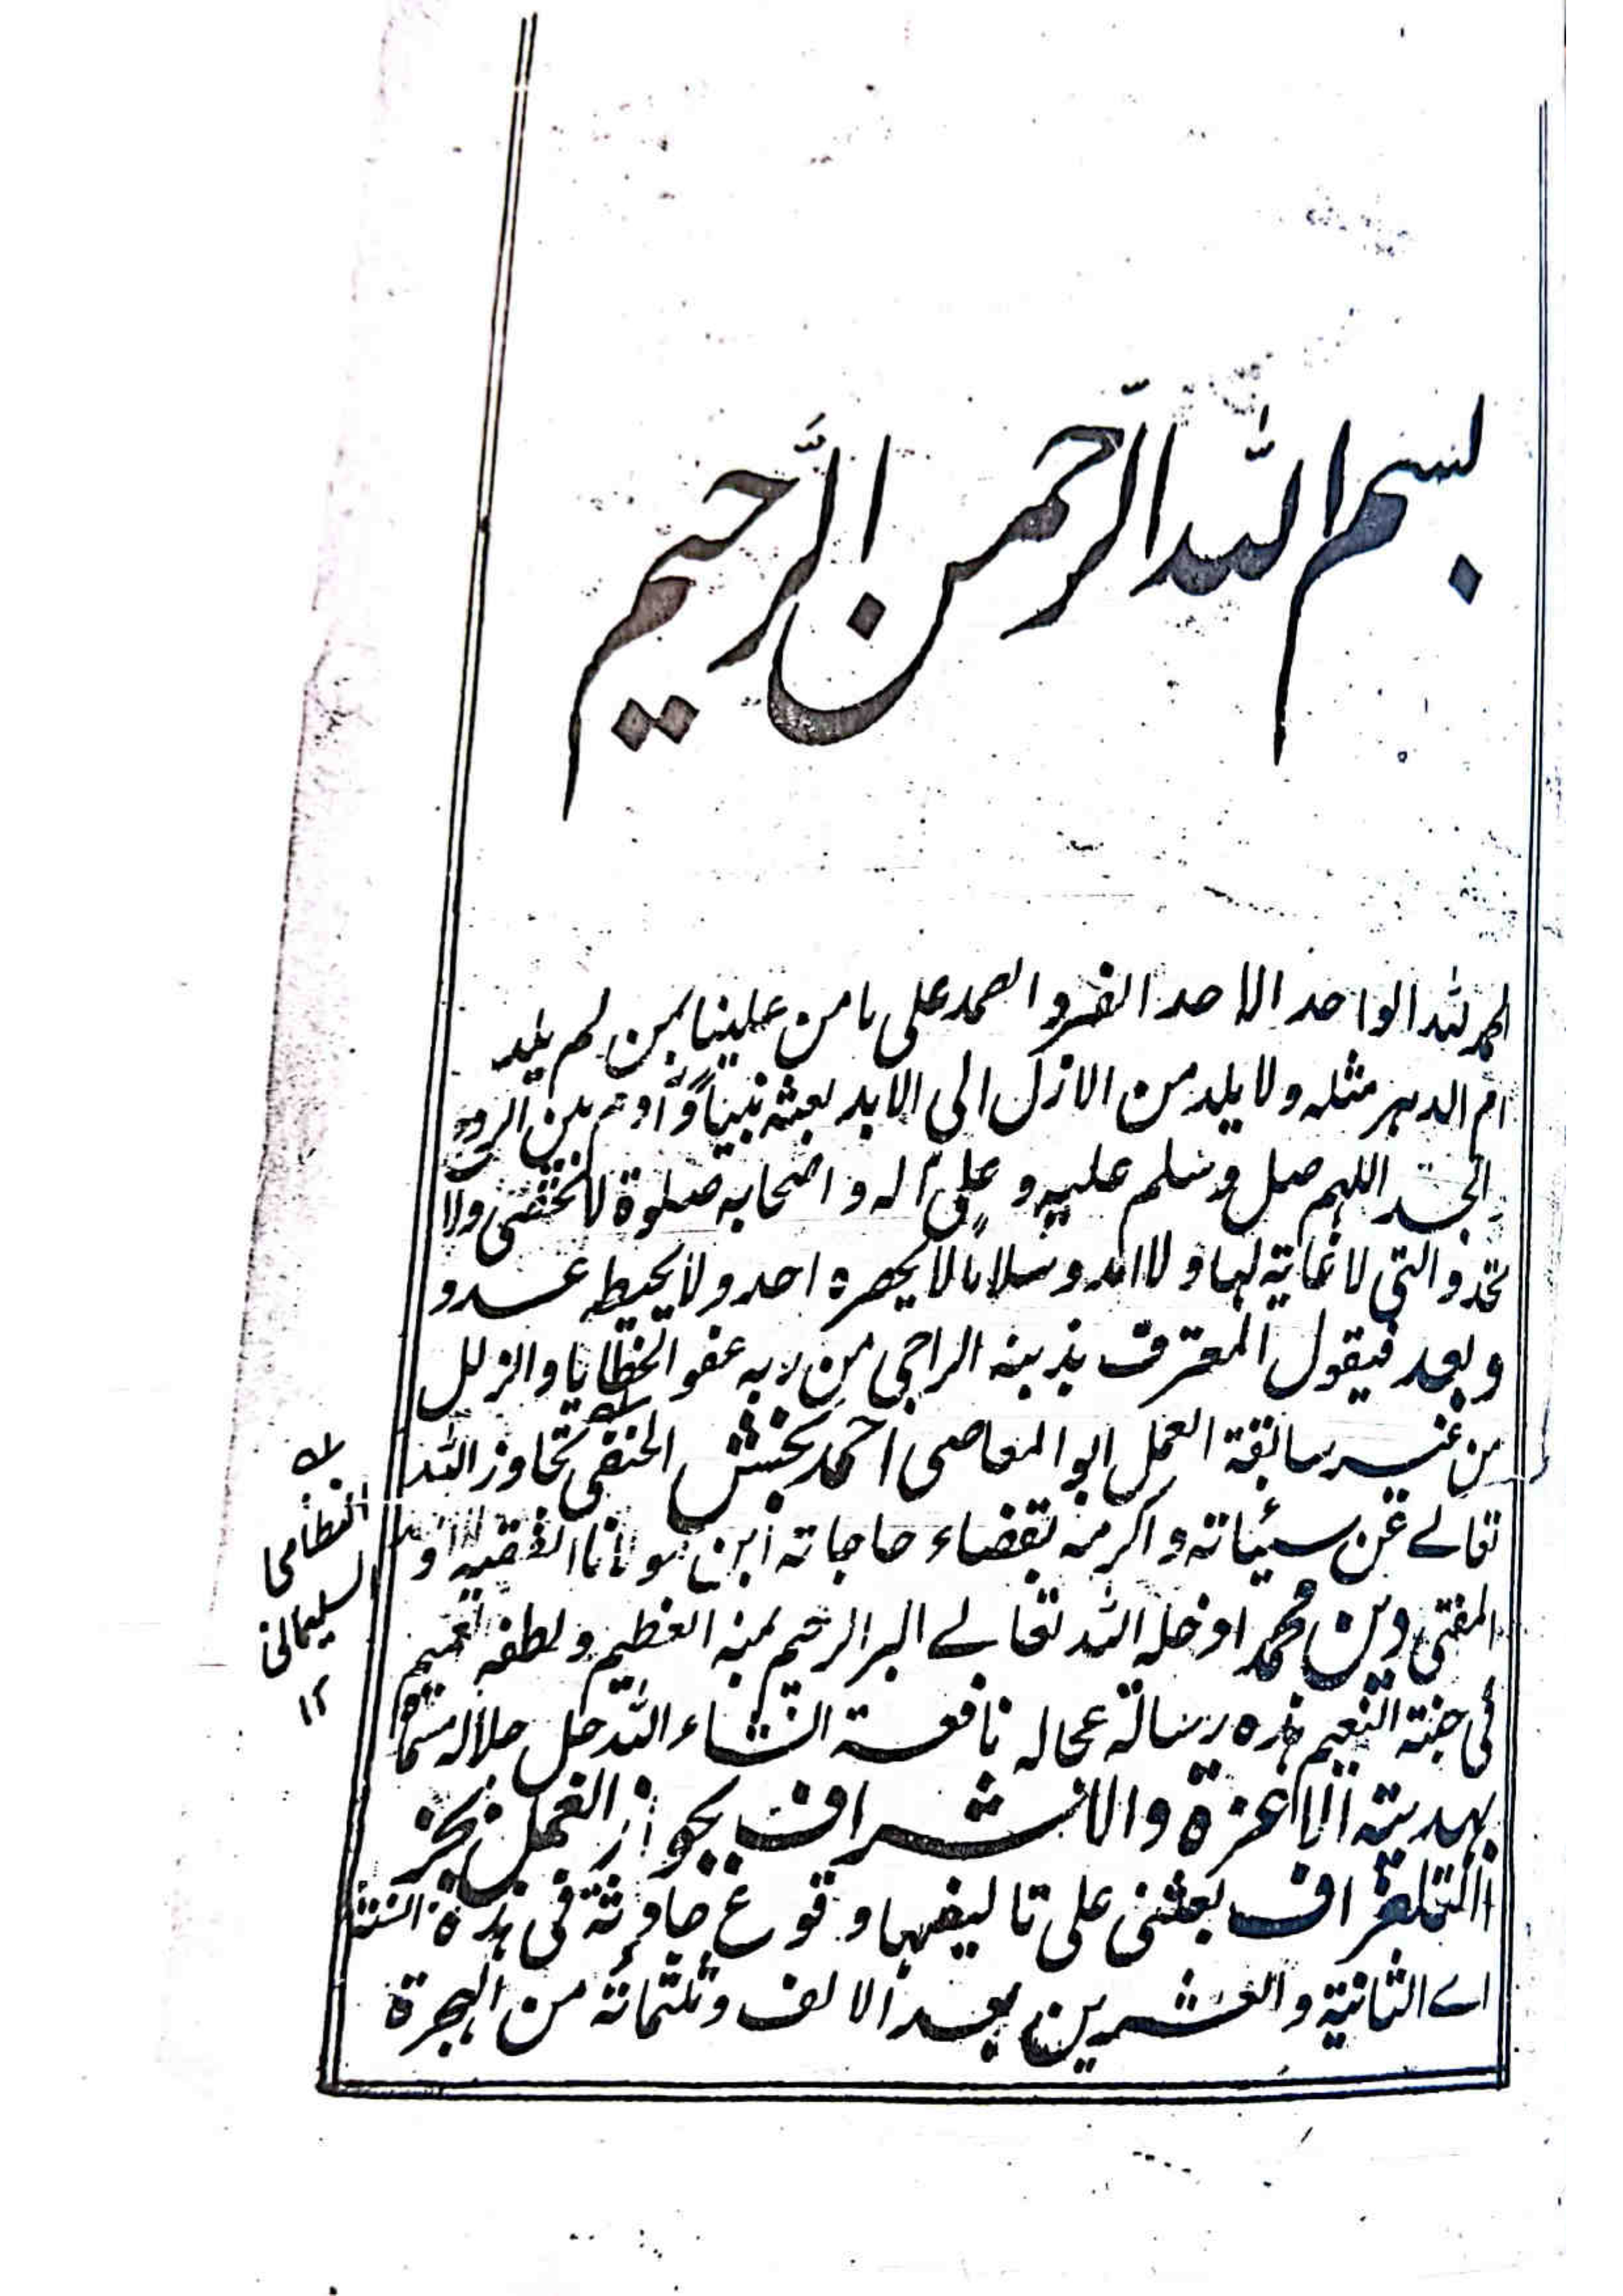 بسم الله الرحمن الرحيم
الحمد لله الواحد الاحد الفرد الصمد على ما من علينا بمن لم يلد
ام الدهر مثله ولا يلد من الازل الى الابد بعثه نبيًا وآدم بين الروح
والجسد اللهم صل وسلم عليه وعلى آله واصحابه صلوة لا تحصى ولا
تحد والتي لا غاية لها ولا امد وسلاما لا يحصره احد ولا يحيطه عدد
وبعد فيقول المعترف بذنبه الراجي من ربه عفو الخطايا والزلل
من غير سابقة العمل ابو المعاصى احمد بخش الحنفى تجاوز الله
تعالے عن سيئاته واكرمه بقضاء حاجاته ابن مولانا الفقيه
المفتى دين محمد ادخله الله تعالے البر الرحيم بمنه العظيم ولطفه العميم
فى جنة النعيم هذه رسالة عجاله نافعة انشاء الله جل جلاله مسماة
بهدية الاعزة والاشراف بجواز العمل بخبر
التلغراف بعثنى على تاليفها وقوع حادثة فى هذه السنة
اے الثانية والعشرين بعد الالف وثلثمائة من الهجرة
النظامى
السليمانى
١٢